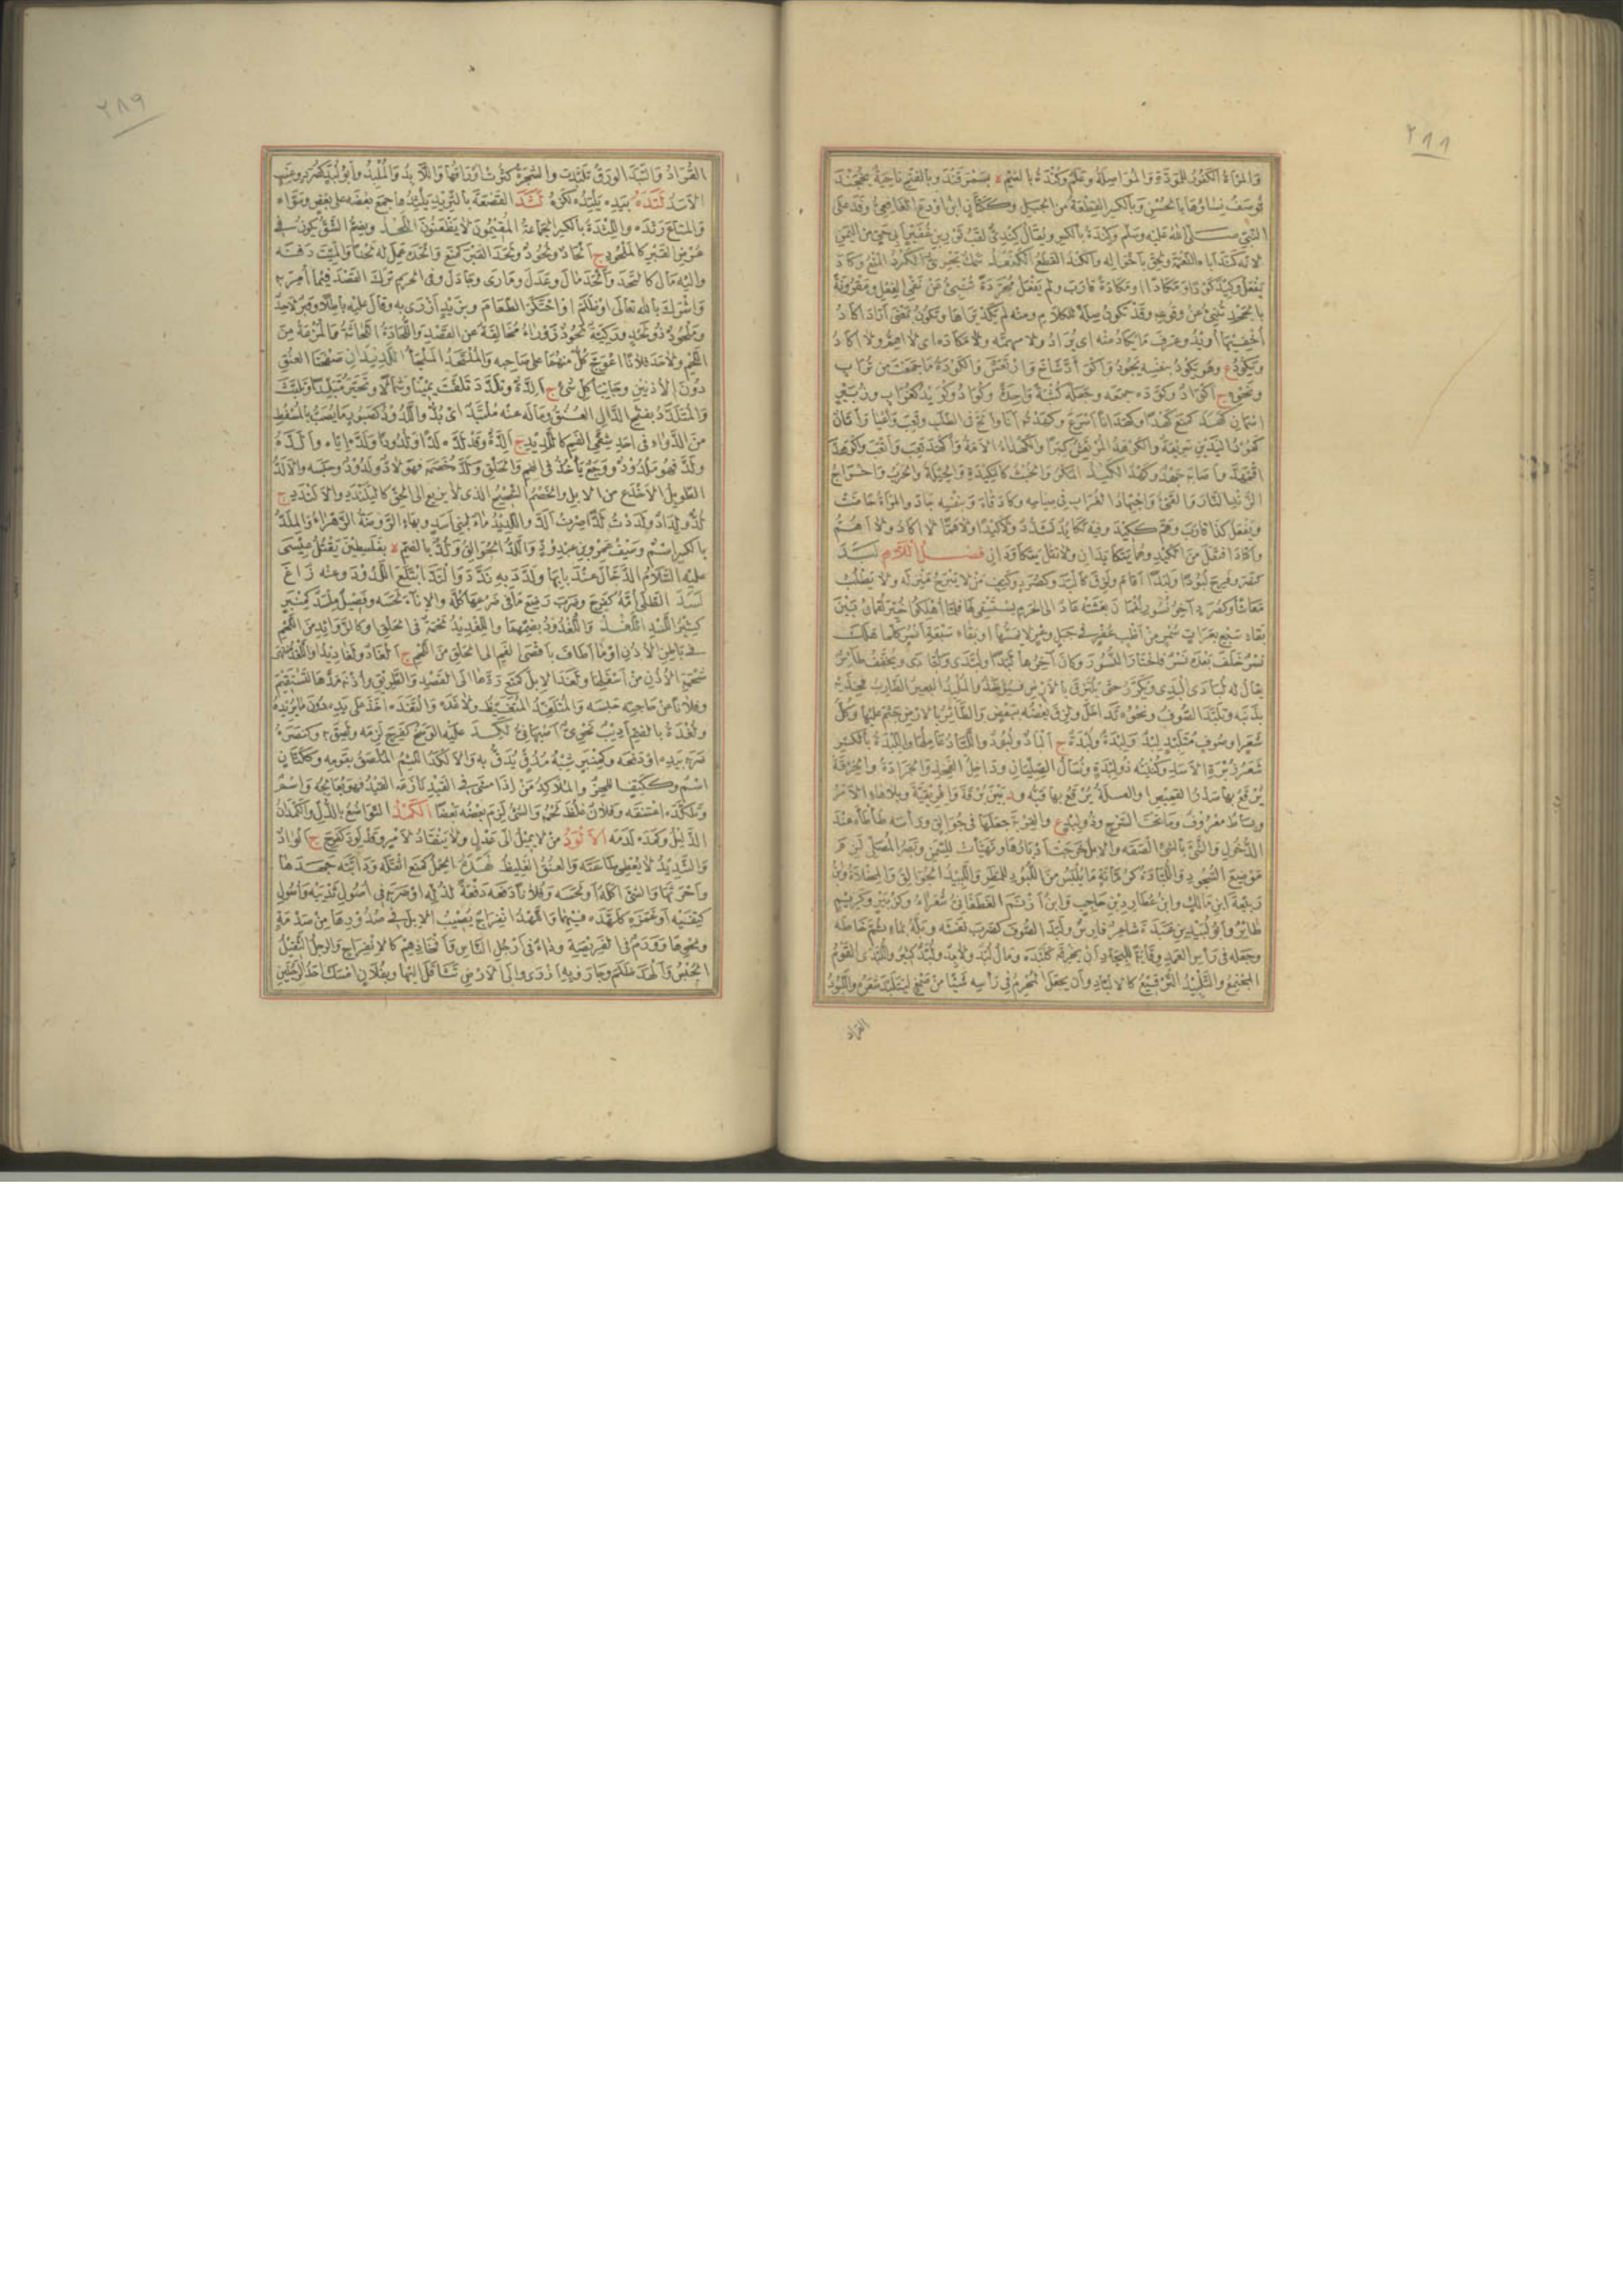 ٢٨٨
والمرأة الكفور للمودة والمواصلة وعلم وكندة بالضم ه بسمرقند وبالفتح ناحية بخجند
توصف نساؤها بالحسن وبالكسر القطعة من الجبل وككتان ابن اودع الغافقي وفد على
النبي صلى الله عليه وسلم وكندة بالكسر ويقال كندي لقب ثور بن عفير ابي حي من اليمن
لانه كند اباه النعمة ولحق باخواله والكند القطع الكنعد سمك بحري الكود المنع وكاد
يفعل وكيد كودا ومكادا ومكادة قارب ولم يفعل مجردة تنبئ عن نفي الفعل ومقرونة
بالجحد تنبئ عن وقوعه وقد تكون صلة للكلام ومنه لم يكد يراها وتكون بمعنى اراد اكاد
اخفيها اريد وعرف ما يكاد منه اي يراد ولا مهمة ولا مكادة اي لا اهم ولا اكاد
ويكود ع وهو يكود بنفسه يجود واكوأد شاخ وارتعش والكودة ما جمعت من تراب
ونحوه ج اكواد وكوده جمعه وجعله كثبة واحدة وكواد وكويد
كهد كمنع كهدا وكهدانا اسرع وكهدته انا والح في الطلب وتعب واعيا واتان
كهود اليدين سريعة والكوهد المرتعش كبرا والكهداء الامة واكهد تعب واتعب واكوهد
اقمهد واصابه جهد وكهد الكيد المكر والخبث كالمكيدة والحيلة والحرب واخراج
الزند النار والقيء واجتهاد الغراب في صياحه وكاد قاء وبنفسه جاد والمرأة حاضت
ويفعل كذا قارب وهم ككيد وفيه تكايد تشدد ولا كيدا ولا هما لا اكاد ولا اهم
واكتاد افتعل من الكيد وهما يتكايدان ولا تقل يتكاودان فصل اللام لبد
كنصر وفرح لبودا ولبدا اقام ولزق كالبد وكصرد وكتف من لا يبرح منزله ولا يطلب
معاشا وكصرد آخر نسور لقمان بعثته عاد الى الحرم يستسقي لها فلما اهلكوا خير لقمان بين
بقاء سبع بعرات سمر من اظب عفر في جبل وعر لا يمسها او بقاء سبعة انسر كلما هلك
نسر خلف بعده نسر فاختار النسور وكان آخرها لبدا ولبدى ولبادى ويخفف طائر
يقال له لبادى البدي ويكرر حتى يلتزق بالارض فيؤخذ والملبد البعير الضارب فخذيه
بذنبه وتلبد الصوف ونحوه تداخل ولزق بعضه ببعض والطائر بالارض جثم عليها وكل
شعر او صوف متلبد لبد ولبدة ولبدة ج الباد ولبود واللباد عاملها واللبدة بالكسر
شعر زبرة الاسد وكنيته ذو لبدة ونسال الصليان وداخل الفخذ والجرادة والخرقة
يرقع بها صدر القميص او القبيلة يرقع بها قبه و د بين برقة وافريقية وبلا هاء الامر
وبساط معروف وما تحت السرج وذو لبد ع والبد القربة جعلها في جوالق ورأسه طأطأه عند
الدخول والشيء بالشيء الصقه والابل خرجت اوبارها وتهيأت للسمن وبصر المصلي لزم
موضع السجود واللبادة كرمانة ما يلبس من اللبود للمطر واللبيد الجوالق والمخلاة وابن
ربيعة ابن مالك وابن عطارد بن حاجب وابن ازنم الغطفاني شعراء وكزبير وكريم
طائر وابو لبيد بن عبدة شاعر فارس ولبد الصوف كضرب نفشه وبله بماء ثم خاطه
وجعله في رأس العمد وقاية للبجاد ان يخرقه كلبده ومال لبد ولابد ولبد كثير واللبدى القوم
المجتمع والتلبيد الترقيع كالالباد وان يجعل المحرم في رأسه شيئا من صمغ ليتلبد شعره واللبود
القراد
٢٨٩
القراد والتبد الورق تلبدت والشجرة كثرت اوراقها واللابد والملبد وابو لبد كصرد وعنب
الاسد لتده بيده يلتده لكزه لثد القصعة بالثريد يلثدها جمع بعضه على بعض وسواه
والمتاع رثده واللثدة بالكسر الجماعة المقيمون لا يظعنون اللحد ويضم الشق يكون في
عرض القبر كالملحود ج الحاد ولحود ولحد القبر كمنع والحده عمل له لحدا والميت دفنه
واليه مال كالتحد والحد مال وعدل ومارى وجادل وفي الحرم ترك القصد فيما امر به
واشرك بالله تعالى او ظلم او احتكر الطعام وبزيد ازرى به وقال عليه باطلا وقبر لاحد
وملحود ذو لحد وركية لحود زوراء مخالفة عن القصد واللحادة اللحاتة والمزعة من
اللحم ولاحد فلانا اعوج كل منهما على صاحبه والملتحد الملجأ اللديدان صفحتا العنق
دون الاذنين وجانبا كل شيء ج الدة وتلدد تلفت يمينا وشمالا وتحير متبلدا وتلبث
والمتلدد بفتح الدال العنق وماله عنه ملتد اي بد واللدود كصبور ما يصب بالمسعط
من الدواء في احد شقي الفم كاللديد ج الدة وقد لده لدا ولدودا ولده اياه والده
ولد فهو ملدود ووجع يأخذ في الفم والحلق ولده خصمه فهو لاد ولدود وحبسه والالد
الطويل الاخدع من الابل والخصم الشحيح الذي لا يزيغ الى الحق كالالندد واليلندد ج
لد ولداد ولددت لدا صرت الد واللديد ماء لبني اسد وبهاء الروضة الزهراء والملد
بالكسر اسم وسيف عمرو بن عبد ود واللد الجوالق ولد بالضم ه بفلسطين يقتل عيسى
عليه السلام الدجال عند بابها ولدد به ندد والتد ابتلع اللدود وعنه زاغ
لسد الطلى امه كفرح وضرب رضع ما في ضرعها كله والاناء لحسه وفصيل ملسد كمنبر
كثير اللسد اللغد واللغدود بضمهما واللغديد لحمة في الحلق او كالزوائد من اللحم
في باطن الاذن او ما اطاف باقصى الفم الى الحلق من اللحم ج الغاد ولغاديد
شحمة الاذن من اسفلها ولغد الابل كمنع ردها الى القصد والطريق واذنه مدها لتستقيم
وفلانا عن حاجته حبسه والمتلغد المتغيظ ولاغده والتغده اخذ على يده دون ما يريد
ولغدة بالضم اديب نحوي اصبهاني لكد عليه الوسخ كفرح لزمه ولصق به وكنصره
ضربه بيده او دفعه وكمنبر شبه مدق يدق به والالكد اللئيم الملصق بقومه وككتان
اسم وككتف اللحز والملاكد من اذا مشى في القيد نازعه القيد فهو يعالجه واسم
وتلكده اعتنقه وفلان غلظ لحمه والشيء لزم بعضه بعضا اللمد التواضع بالذل واللمدان
الذليل ولمده لدمه الالود من لا يميل الى عدل ولا ينقاد لامر وقد لود كفرح ج الواد
والشديد لا يعطي طاعته والعنق الغليظ لهده الحمل كمنع اثقله ودابته جهدها
واحرثها والشيء اكله او لحسه وفلانا دفعه دفعة لذله او ضربه في اصول ثدييه واصول
كتفيه او غمزه كلهده فيهما واللهد انفراج يصيب الابل في صدورها من صدمة
ونحوها وورم في الفريصة وداء في ارجل الناس وافخاذهم كالانفراج والرجل الثقيل
الجبس والهد ظلم وجار وبه ازرى والى الارض تثاقل اليها وبفلان امسك احد الرجلين